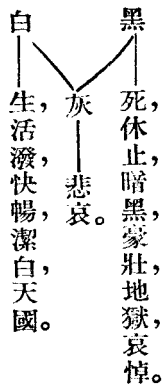 黑
死，休止，暗黑，豪壯，地獄，哀悼。
灰
悲哀。
白
生，活潑，快暢，潔白，天國。